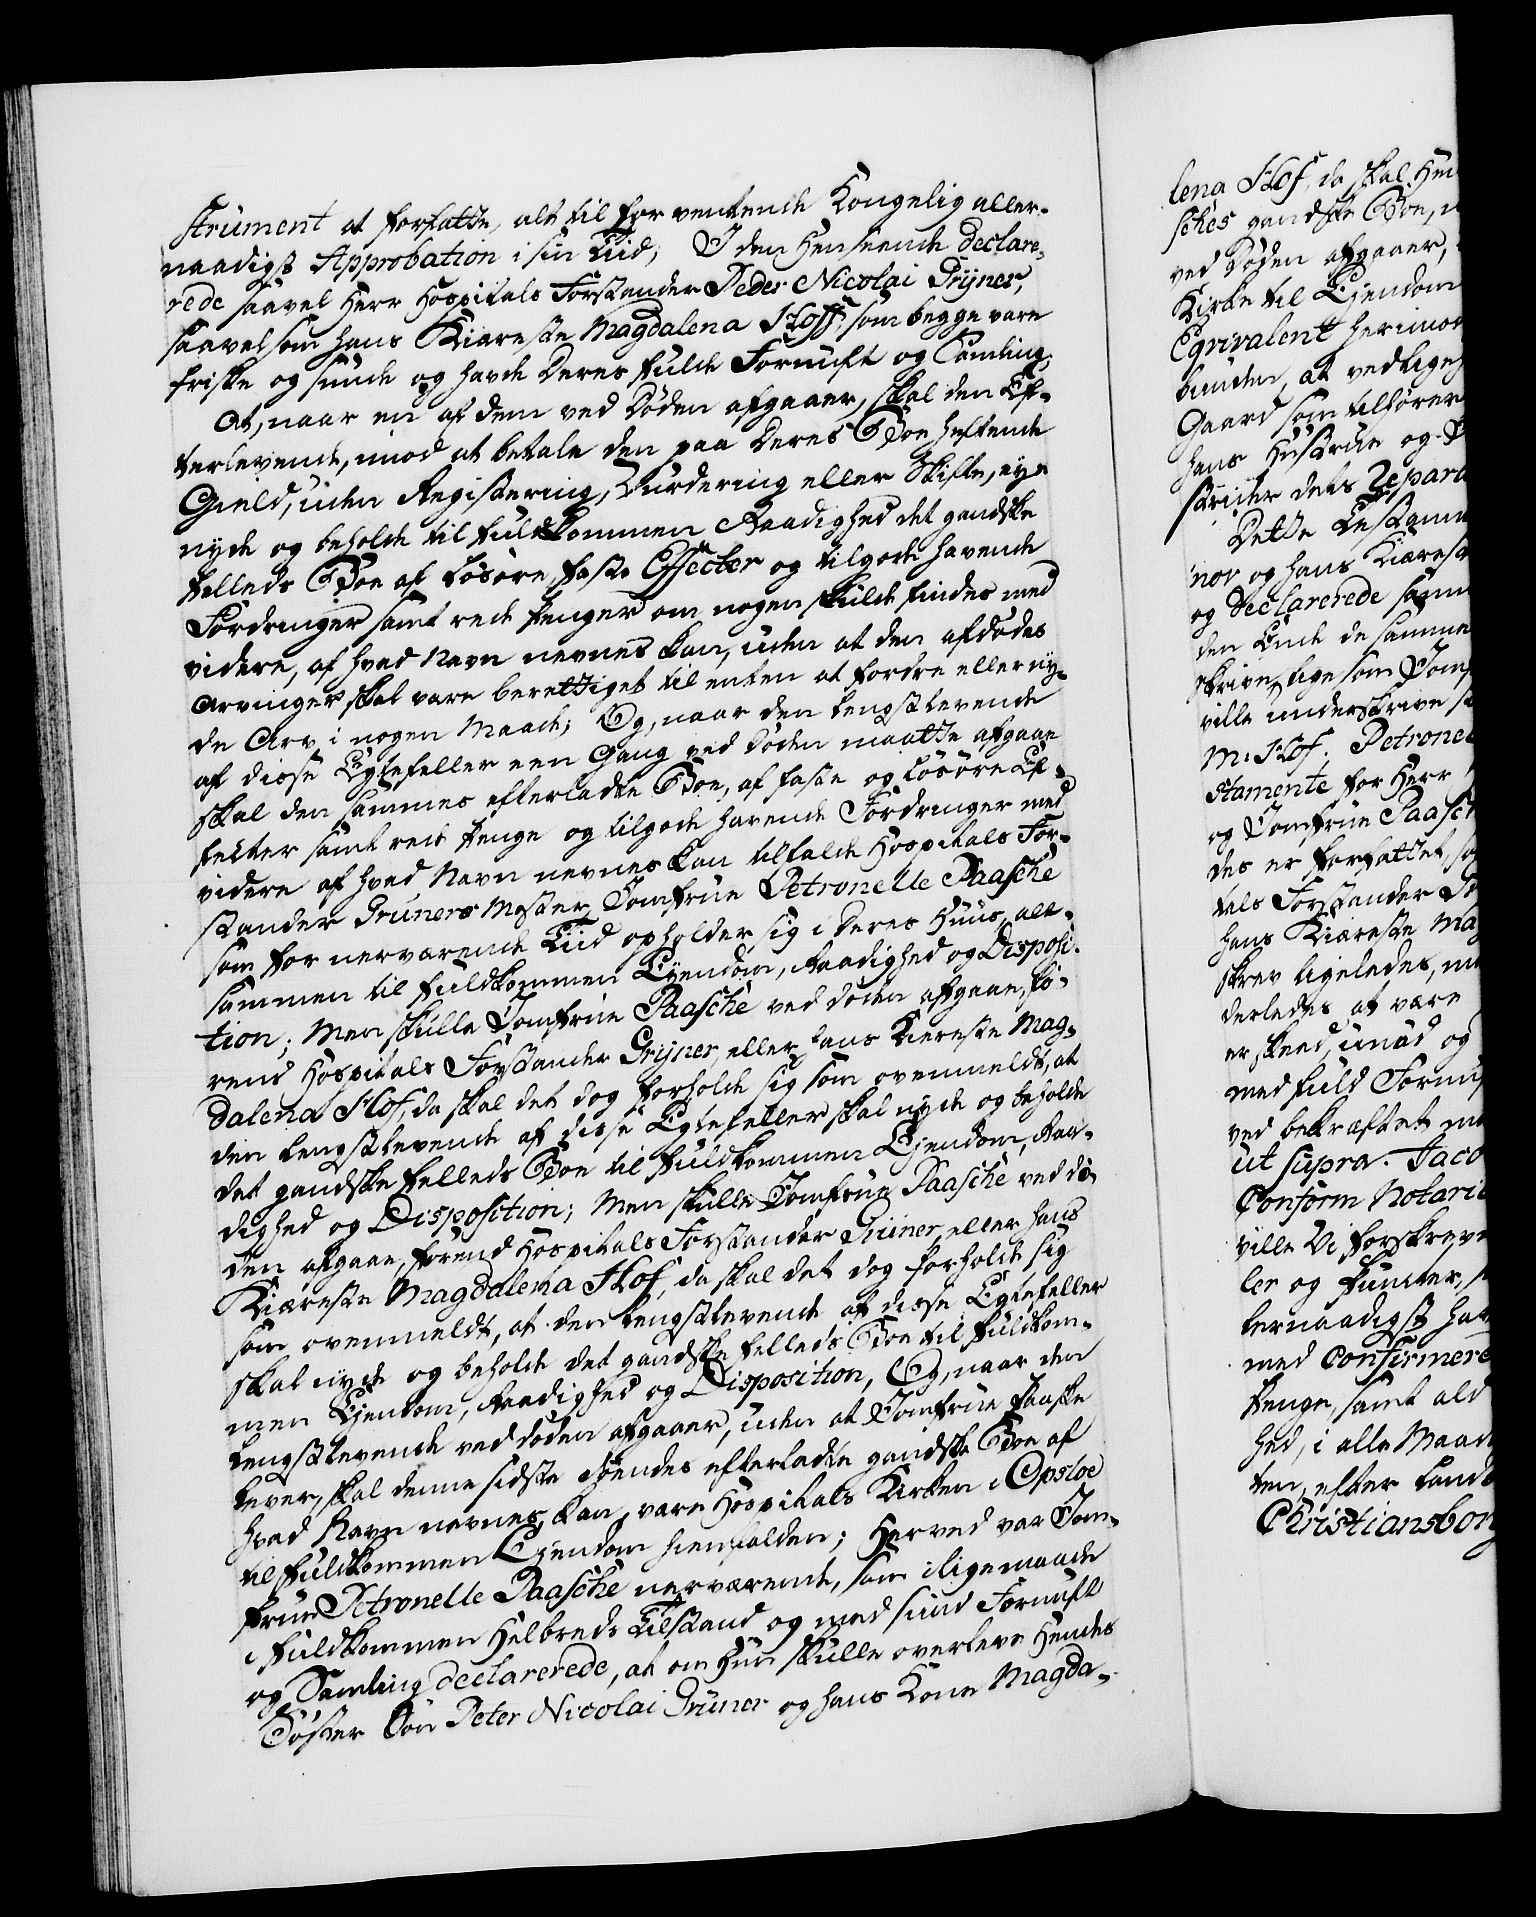 strument at forfatte, alt til forventende Kongelig aller-
naadigst Approbation i sin Tiid; I den Henseende declare-
rede saavel Herr Hospitals Forstander Peder Nicolai Gryner,
saavelsom hans Kiæreste Magdalena Hoff, som begge vare
friske og sunde og havde deres fulde Fornuft og Samling,
At, naar en af dem ved Døden afgaaer, skal den Ef-
terlevende, imod at betale den paa deres Boe heftende
Gield, uden Registering, Vurdering eller Skifte, eye
nyde og beholde til fuldkommen Raadighed det gandske
Felleds Boe af Løsøre, faste Effecter og tilgode havende
Fordringer samt rede Penger om nogen skulde findes med
videre, af hvad Navn nevnes kan, uden at den afdødes
Arvinger skal være berettiget til enten at fordre eller ny-
de Arv i nogen Maade; Og, naar den Længstlevende
af disse Egtefeller een Gang ved Døden maatte afgaae
skal den sammes efterladte Boe, af faste og Løsøre Ef-
fecter samt rede Penge og tilgode havende Fordringer med
videre af hvad Navn nevnes kan tilfalde Hospitals For-
stander Gruners Moster Jomfrue Petronelle Paasche
som for nerværende Tiid opholder sig i deres Huus, alt-
sammen til fuldkommen Eyendom, Raadighed og Disposi-
tion; Men skulle Jomfrue Paasche ved døden afgaae, fø-
rend Hospitals Forstander Gryner, eller hans Kiereste Mag-
dalena Hof, da skal det dog forholde sig som ovenmeldt, at
den længstlevende af disse Egtefeller skal nyde og beholde
det gandske Felleds Boe til fuldkommen Eyendom, Raa-
dighed og Disposition; Men skulle Jomfrue Paasche ved Dø-
den afgaae, førend Hospitals Forstander Gruner, eller hans
Kiæreste Magdalena Hof, da skal det dog forholde sig
som ovenmeldt, at den længstlevende af disse Egtefeller
skal nyde og beholde det gandske Felleds Boe til fuldkom-
men Eyendom, Raadighed og Disposition, Og, naar den
længstlevende ved døden afgaaer, uden at Jomfrue Paaske
lever, skal denne sidste Døendes efterladte gandske Boe af
hvad Navn nevnes kan, være Hospitals Kirken i Opsloe
til fuldkommen Eyendom hiemfalden; Herved var Jom-
frue Petronelle Paasche nerværende, som i ligemaade
i fuldkommen Helbreds Tilstand og med sund Fornuft
og Samling declarerede, at om Hun skulle overleve Hendes
Søster Søn Peter Nicolai Gruner og hans Kone Magda-
lena Hof, da skal Hen
sches gandske Boe,
ved Døden afgaaer,
Kirke til Eyendom
Eqvivalent herimod
bunden, at vedlige
Gaard som tilhører
hans Hustrue og
dets Repara
Dette Testam
ner og hans Kiærest
og declarerede
den Ende de samme
skrive, lige som Jom
ville underskrive
M: Hof. Petronel
stamente for Herr
og Jomfrue Paasch
des er forfattet,
tals Forstander
hans Kiæreste Mag
skrev ligeledes,
derledes at være
er skeed, imod og
med fuld Fornuf
ved bekræftet
ut supra. Jaco
Conform Notari
ville Vi forskrevne
ler og Puncter,
lernaadigst hav
med Confirmere
Penge, samt ald
hed, i alle Maad
ten, efter Land
Christiansborg